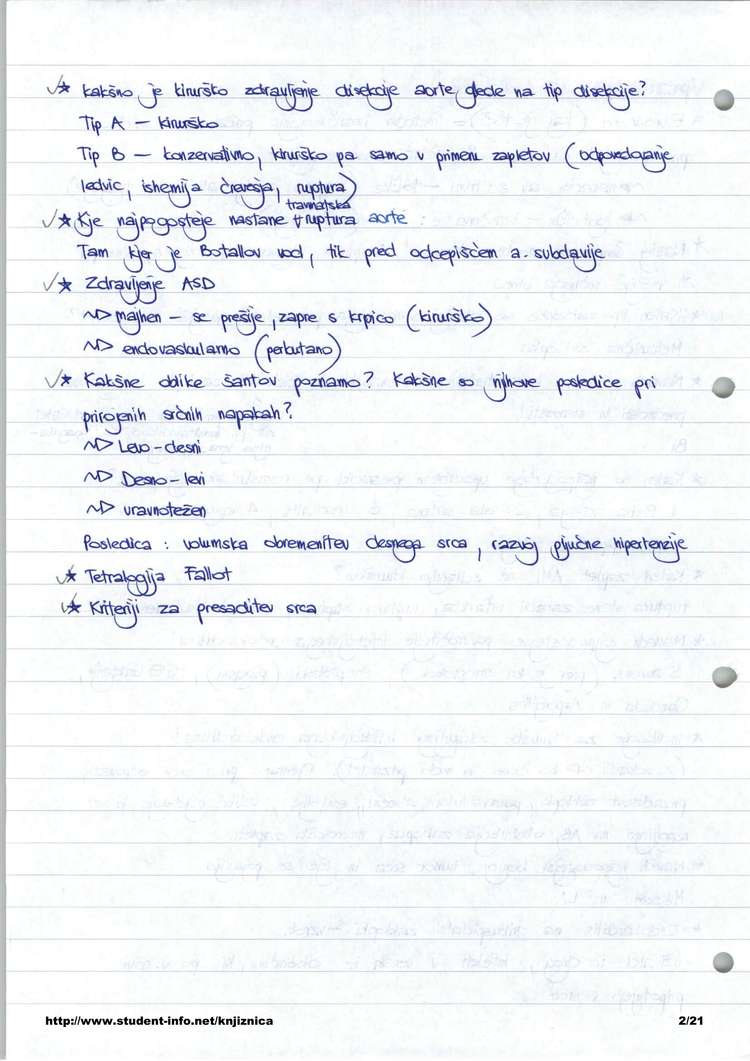 ✓* Kakšno je kirurško zdravljenje disekcije aorte glede na tip disekcije?
Tip A – kirurško
Tip B – konzervativno, kirurško pa samo v primeru zapletov (odpovedovanje
ledvic, ishemija črevesja, ruptura)
travmatska
✓* Kje najpogosteje nastane ruptura aorte:
Tam kjer je Botallov vod, tik pred odcepiščem a. subclavije
✓* Zdravljenje ASD
~> majhen – se prešije, zapre s krpico (kirurško)
~> endovaskularno (perkutano)
✓* Kakšne oblike šantov poznamo? Kakšne so njihove posledice pri
prirojenih srčnih napakah?
~> Levo-desni
~> Desno-levi
~> uravnotežen
Posledica: volumska obremenitev desnega srca, razvoj pljučne hipertenzije
✓* Tetralogija Fallot
✓* Kriteriji za presaditev srca
http://www.student-info.net/knjiznica 2/21